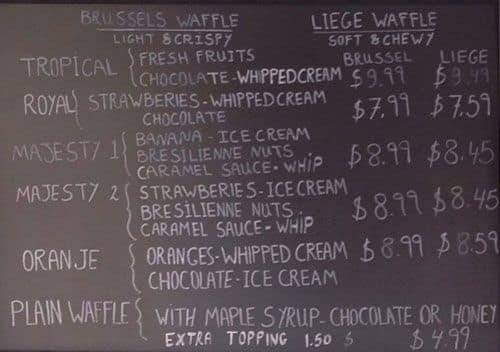 BRUSSELS WAFFLE LIEGE WAFFLE
LIGHT & CRISPY SOFT & CHEWY
BRUSSEL LIEGE
TROPICAL { FRESH FRUITS
CHOCOLATE - WHIPPED CREAM $9.99 $9.49
ROYAL { STRAWBERIES - WHIPPED CREAM $7,99 $7.59
CHOCOLATE
MAJESTY 1 { BANANA - ICE CREAM
BRESILIENNE NUTS $8.99 $8.45
CARAMEL SAUCE - WHIP
MAJESTY 2 { STRAWBERIES - ICE CREAM
BRESILIENNE NUTS $8.99 $8.45
CARAMEL SAUCE - WHIP
ORANJE { ORANGES - WHIPPED CREAM $8,99 $8.59
CHOCOLATE - ICE CREAM
PLAIN WAFFLE { WITH MAPLE SYRUP - CHOCOLATE OR HONEY
EXTRA TOPPING 1.50 $ $4.99